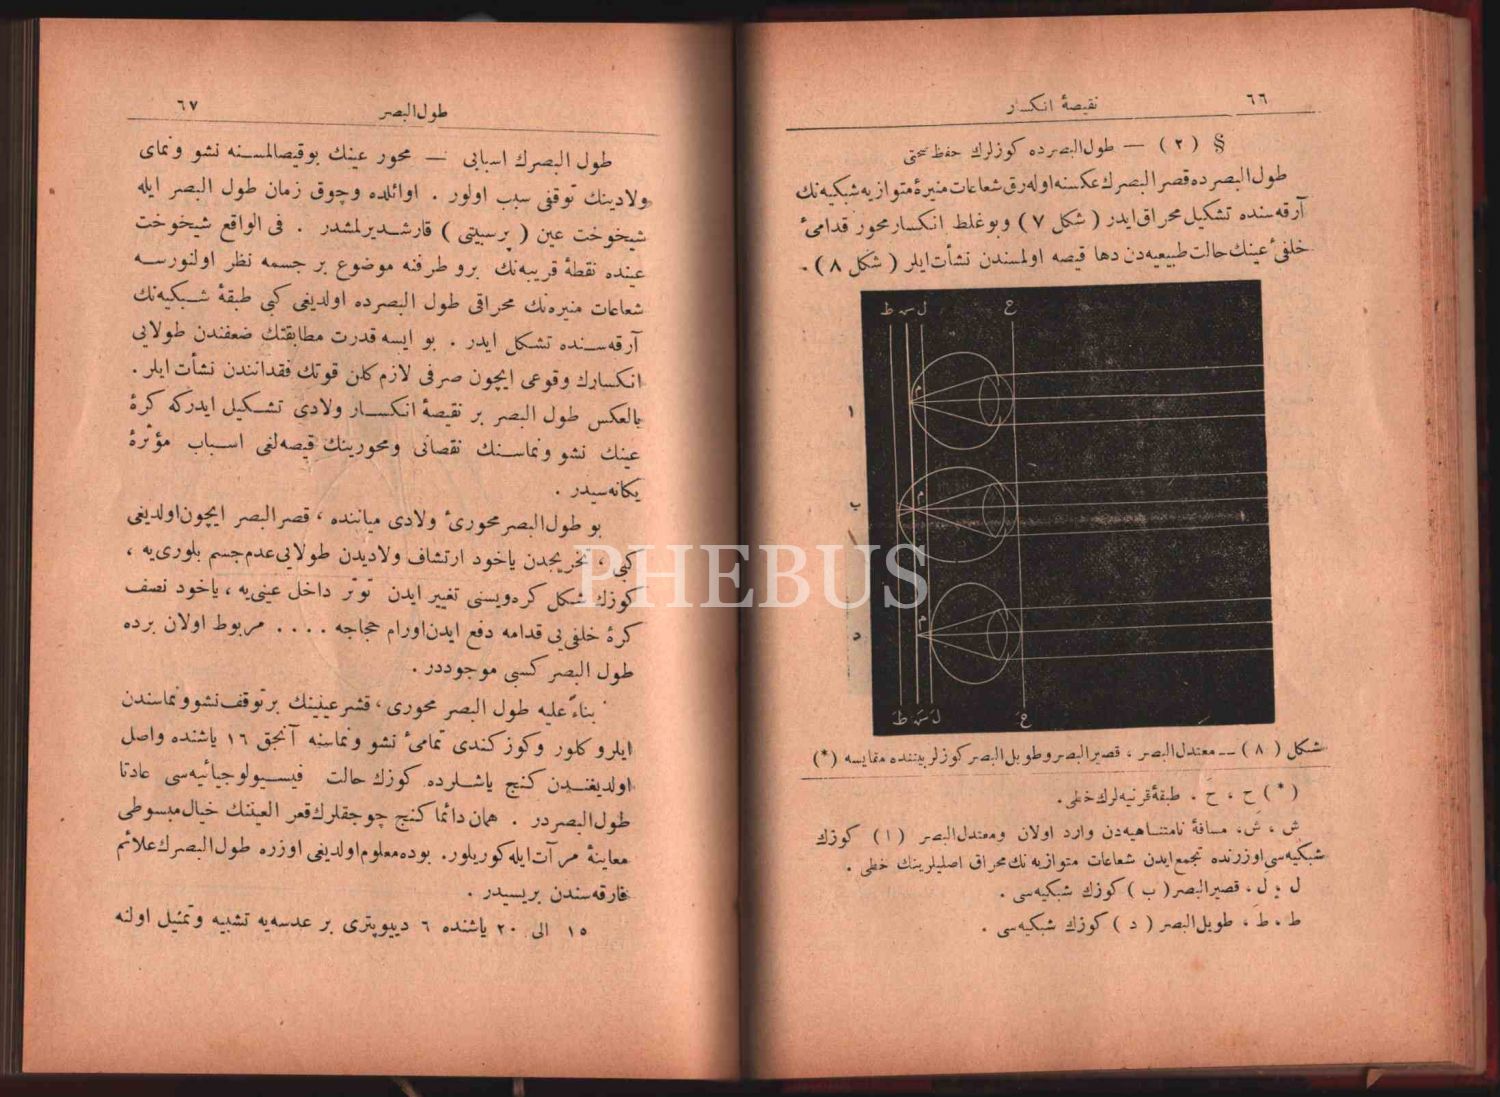 ٦٦
نقیصهٔ انكسار
§ (٢) — طول‌البصرده كوزلرك حفظ صحتی
طول‌البصرده قصر‌البصرك عكسنه اوله‌رق شعاعات منیرهٔ متوازیه شبكیه‌نك
آرقه‌سنده تشكیل محراق ایدر ( شكل ٧ ) و بو غلط انكسار محور قدامیٔ
خلفیٔ عینك حالت طبیعیه‌دن دها قیصه اولمسندن نشأت ایلر ( شكل ٨ ) .
ط س ل ح
م
ا
م
ب
م
د
طَ سَ لَ حَ
شكل ( ٨ ) — معتدل‌البصر ، قصیر‌البصر و طویل‌البصر كوزلر بیننده مقایسه (*)
(*) ح ، حَ . طبقهٔ قرنیه‌لرك خطی .
ش ، شَ ، مسافهٔ نامتناهیه‌دن وارد اولان و معتدل‌البصر ( ا ) كوزك
شبكیه‌سی اوزرنده تجمع ایدن شعاعات متوازیه‌نك محراق اصلیلرینك خطی .
ل ، لَ ، قصیر‌البصر ( ب ) كوزك شبكیه‌سی .
ط ، طَ ، طویل‌البصر ( د ) كوزك شبكیه‌سی .
طول‌البصر
٦٧
طول البصرك اسبابی — محور عینك بو قیصالمسنه نشو و نمای
ولادینك توقفی سبب اولور . اوائلده و چوق زمان طول البصر ایله
شیخوخت عین ( پرسبیتی ) قارشدیرلمشدر . فی الواقع شیخوخت
عینده نقطهٔ قریبه‌نك برو طرفنه موضوع بر جسمه نظر اولنورسه
شعاعات منیره‌نك محراقی طول البصرده اولدیغی كبی طبقهٔ شبكیه‌نك
آرقه‌سنده تشكل ایدر . بو ایسه قدرت مطابقتك ضعفندن طولایی
انكسارك وقوعی ایچون صرفی لازم كلن قوتك فقدانندن نشأت ایلر .
بالعكس طول البصر بر نقیصهٔ انكسار ولادی تشكیل ایدركه كرهٔ
عینك نشو و نماسنك نقصانی و محورینك قیصه‌لغی اسباب مؤثرهٔ
یكانه‌سیدر .
بو طول‌البصر محوریٔ ولادی میاننده ، قصر‌البصر ایچون اولدیغی
كبی ، تخریجدن یاخود ارتشاف ولادیدن طولایی عدم جسم بلوری‌یه ،
كوزك شكل كرویسنی تغییر ایدن توتر داخل عینی‌یه ، یاخود نصف
كرهٔ خلفی‌یی قدامه دفع ایدن اورام حجاجه .... مربوط اولان برده
طول البصر كسبی موجوددر .
بناءً علیه طول البصر محوری ، قشر عینینك بر توقف نشو و نماسندن
ایلرو كلور و كوز كندی تمامیٔ نشو و نماسنه آنجق ١٦ یاشنده واصل
اولدیغندن كنج یاشلرده كوزك حالت فیسیولوجیائیه‌سی عادتا
طول‌البصردر . همان دائما كنج چوجقلرك قعر العینك خیال مبسوطی
معاینهٔ مرآت ایله كوریلور. بوده معلوم اولدیغی اوزره طول‌البصرك علائم
فارقه‌سندن بریسیدر .
١٥ الی ٢٠ یاشنده ٦ دییوپتری بر عدسه‌یه تشبیه و تمثیل اولنه
PHEBUS